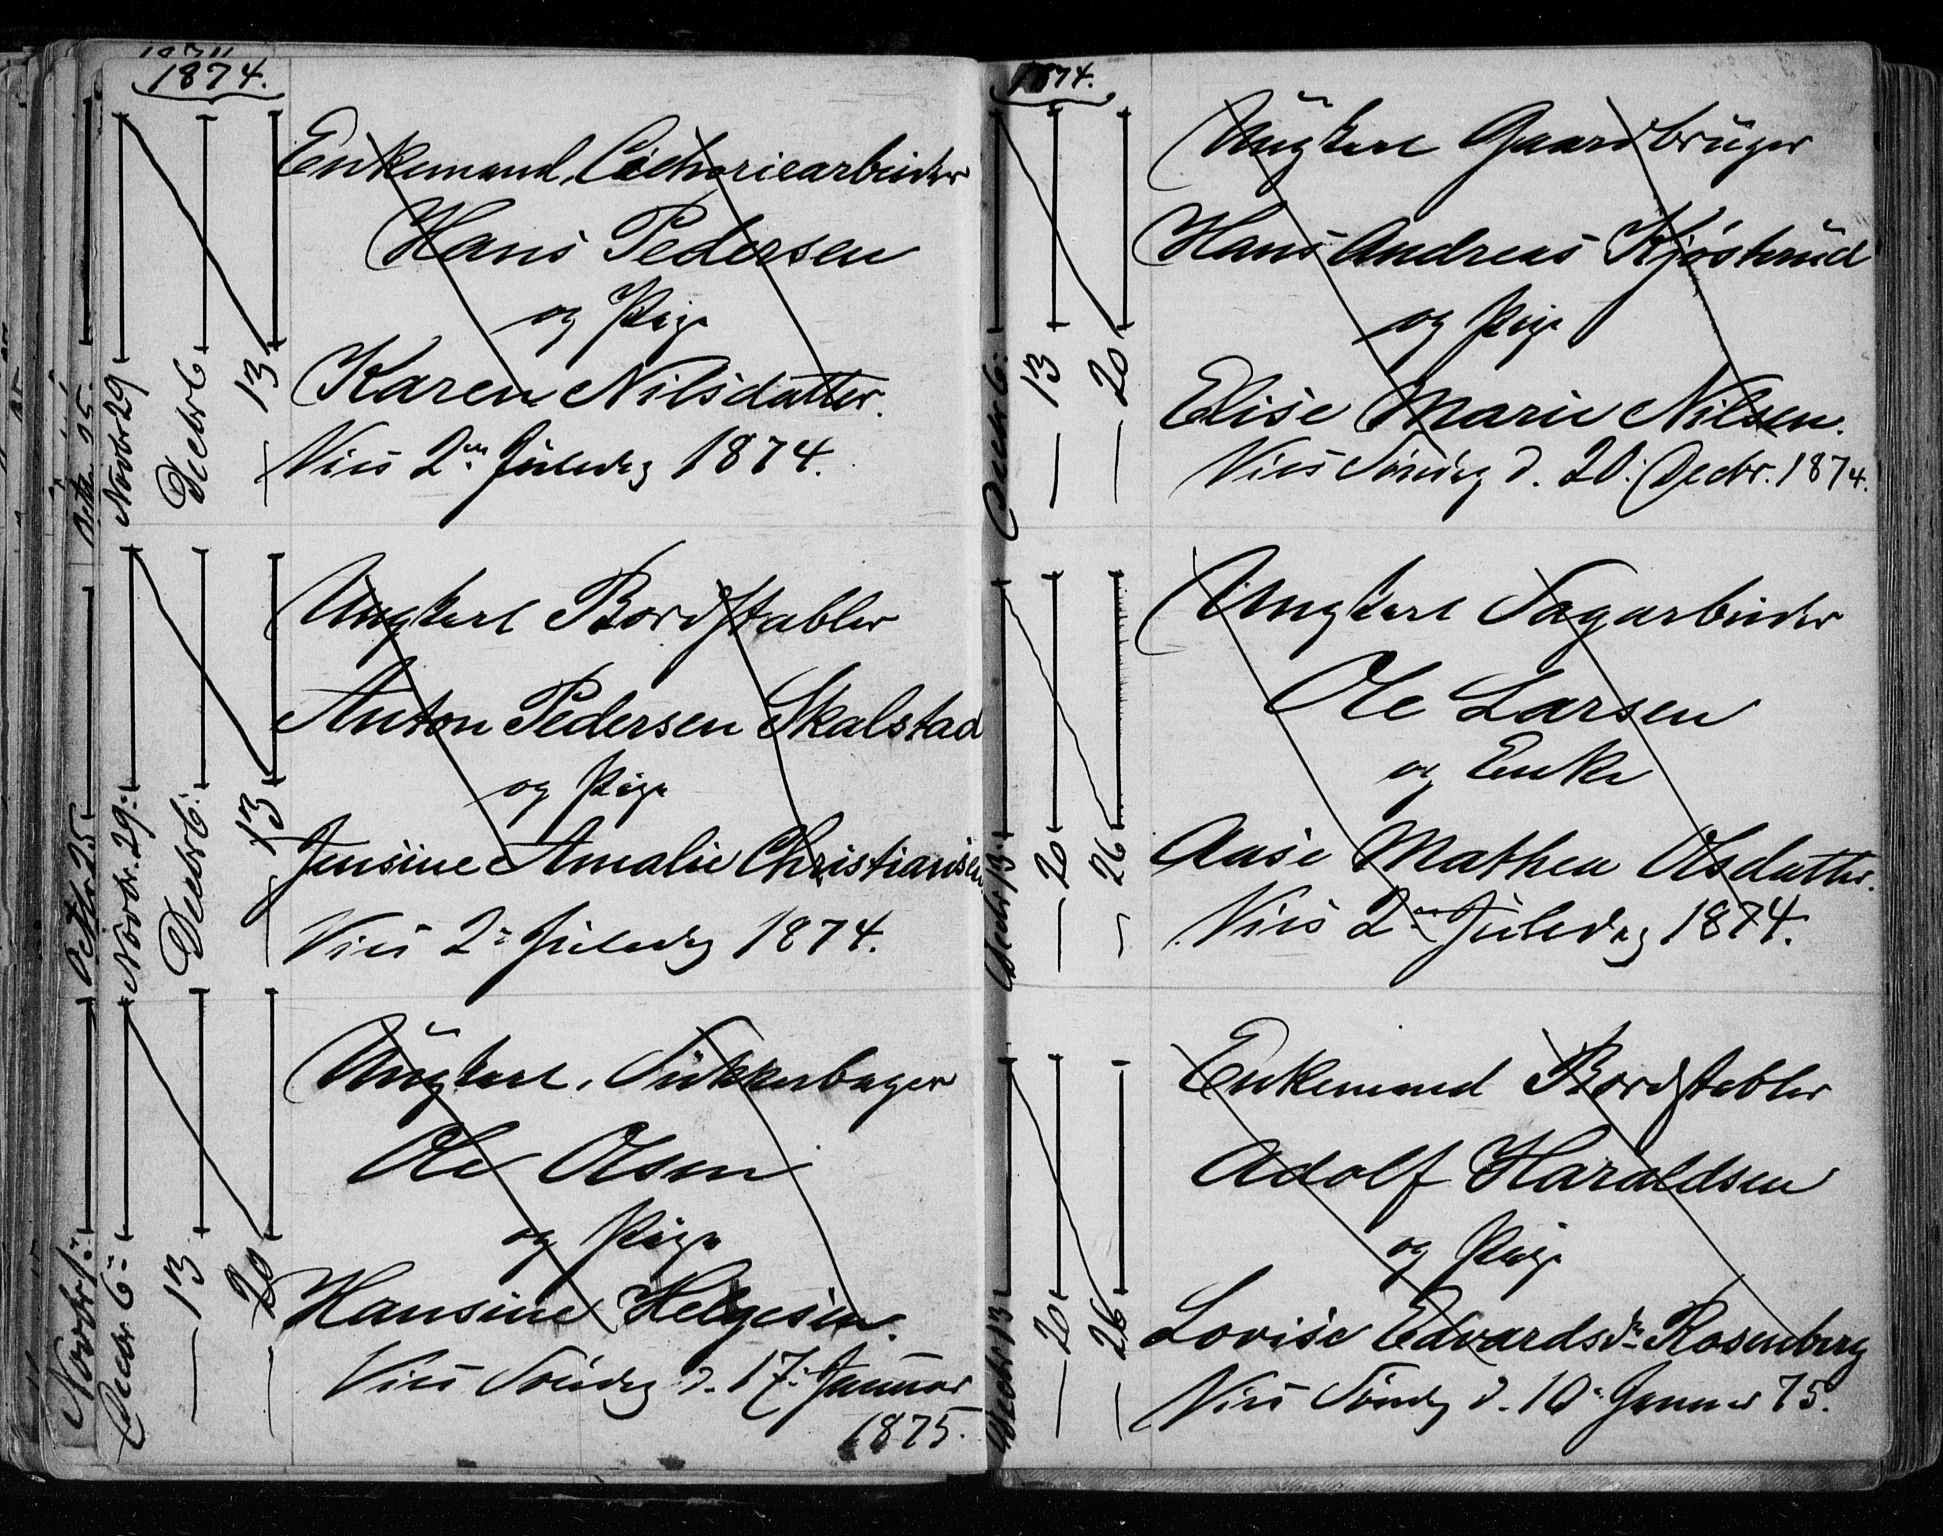 1874.
Novbr 29
Decbr 6
— 13
Enkemand, Cichoriearbeider
Hans Pedersen
og Pige
Karen Nilsdatter.
Vies 2den Juledag 1874.
Novbr. 29:
Decbr 6:
— 13
Ungkarl Bordstabler
Anton Pedersen Skalstad
og Pige
Jensine Amalie Christiansen
Vies 2: Juledag 1874.
Decbr 6:
— 13
— 20
Ungkarl, Sukkerbager
Ole Olsen
og Pige
Hansine Helgesen.
Vies Søndag d. 17: Januar
1875.
1874.
Decbr 6:
— 13
— 20
Ungkarl Gaardbruger
Hans Andreas Kjøsterud
og Pige
Elise Marie Nilsen.
Vies Søndag d. 20: Decbr. 1874.
Decbr 13:
— 20
— 26
Ungkarl Sagarbeider
Ole Larsen
og Enke
Anse Mathea Olsdatter.
Vies 2den Juledag 1874.
Decbr 13
— 20
— 26
Enkemand Bordstabler
Adolf Haraldsen
og Pige
Lovise Edvardsdr. Rosenberg
Vies Søndag d. 10: Januar 75.